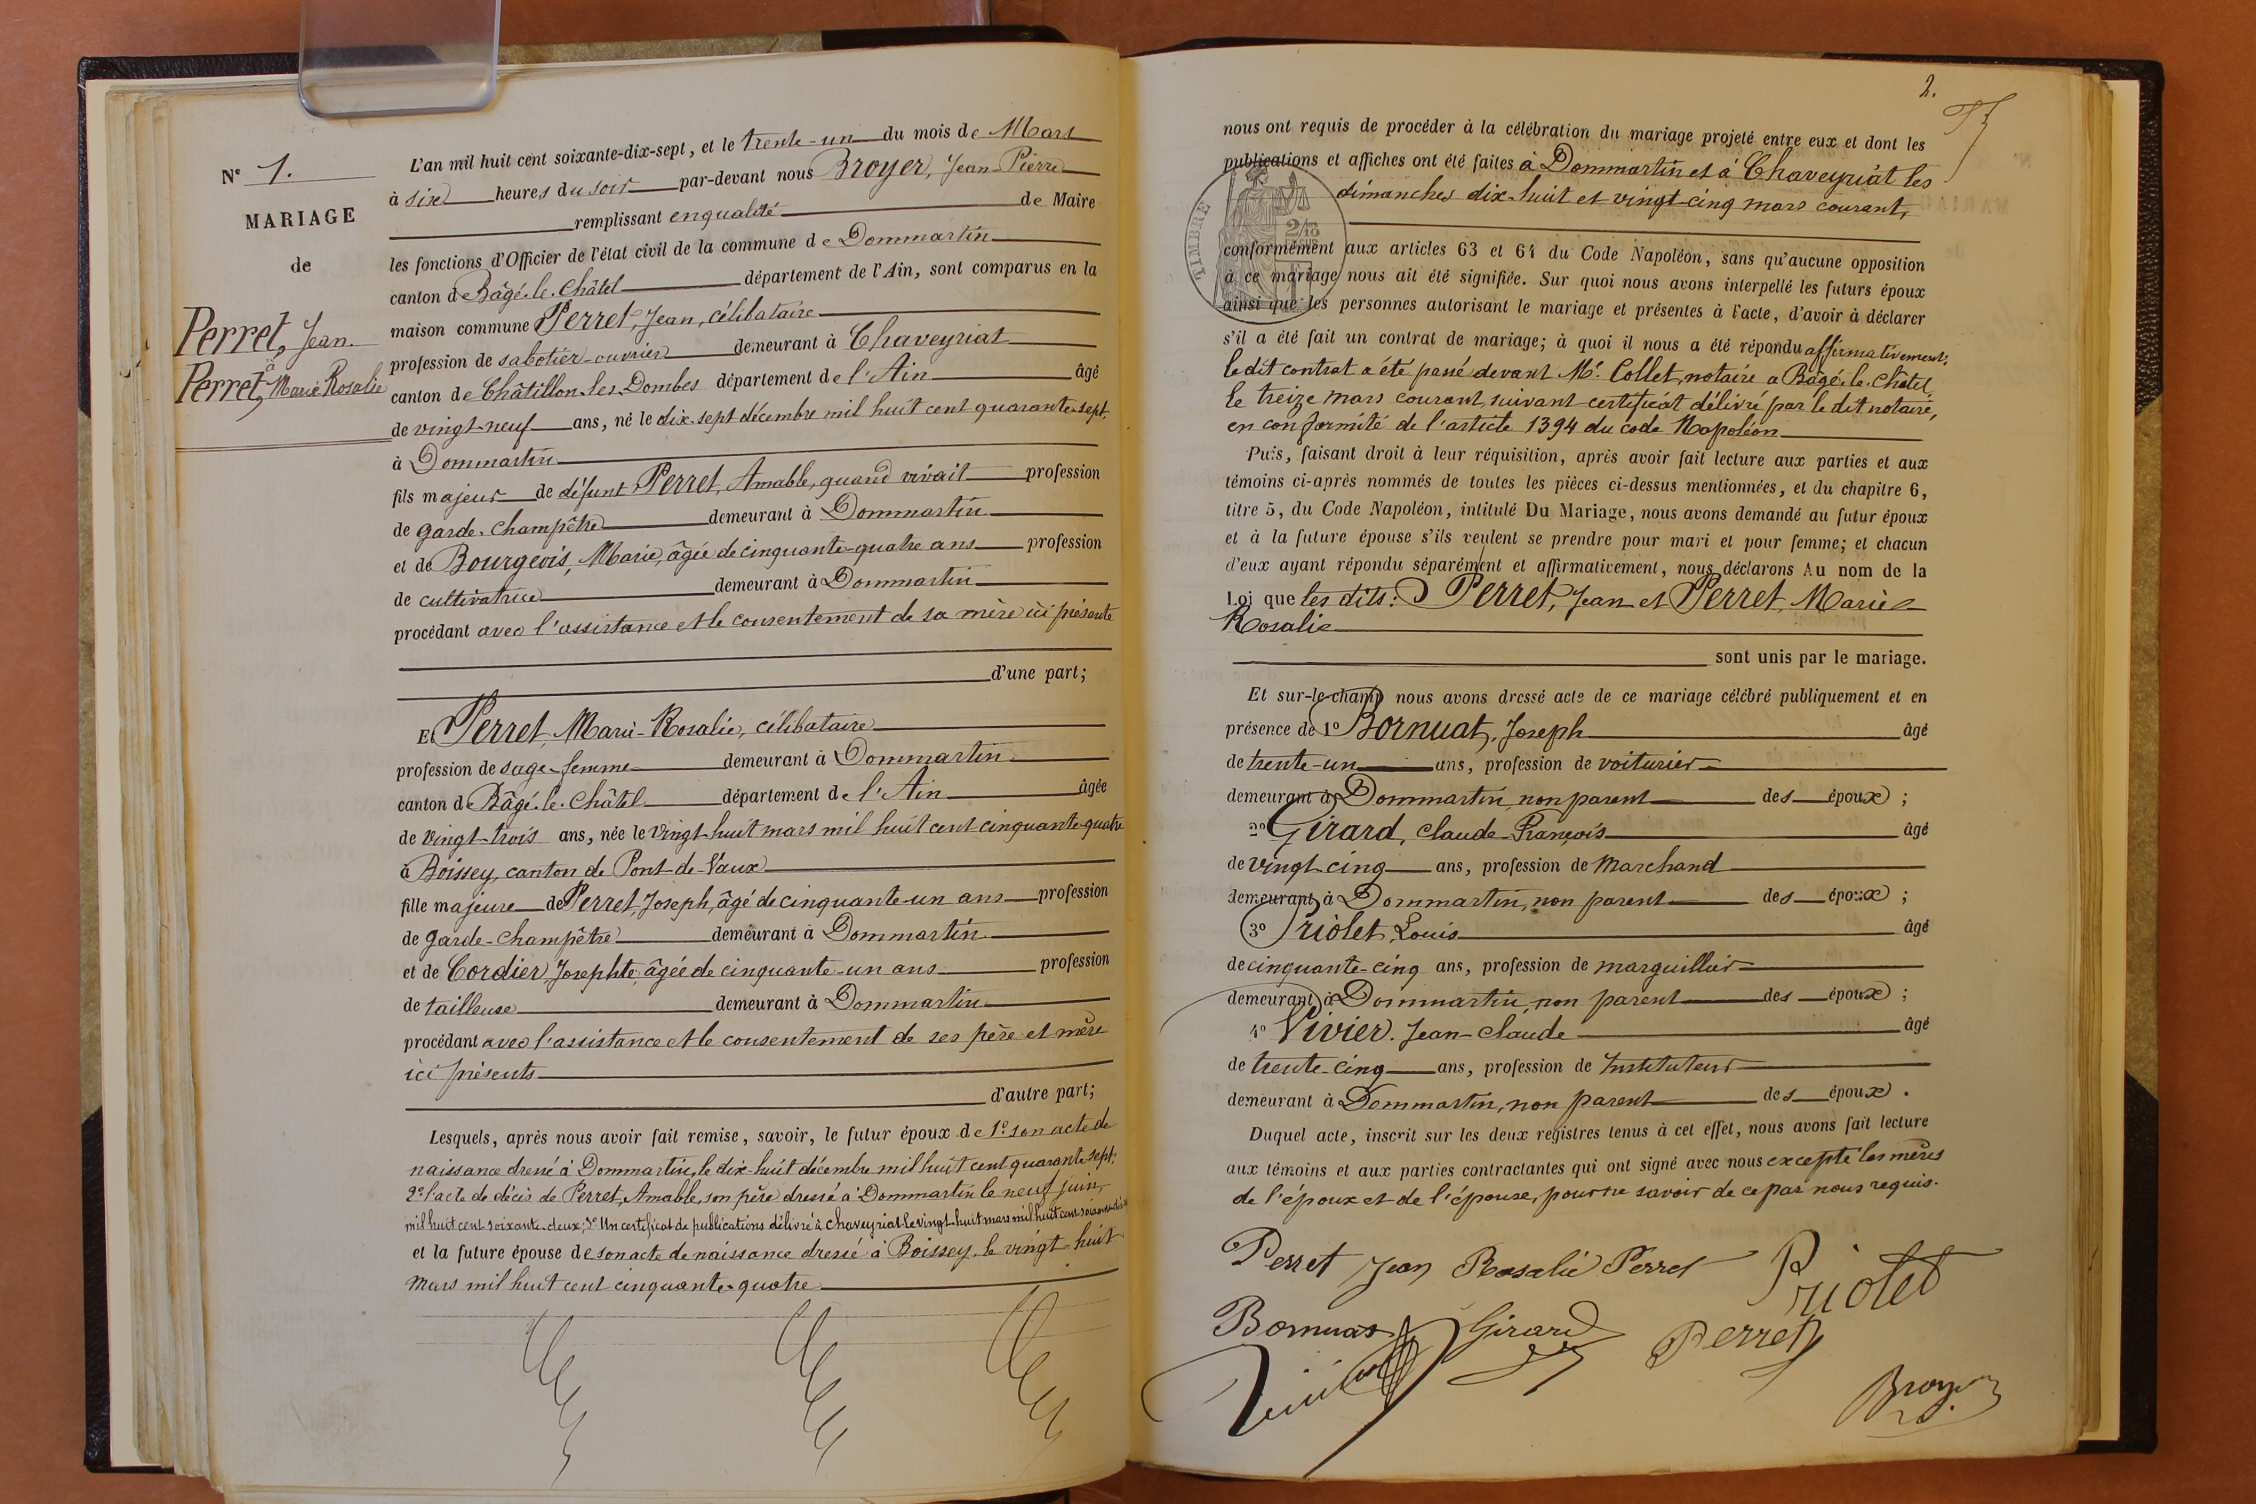 N° 1.
MARIAGE
de
Perret, Jean.
à
Perret, Marie Rosalie
L'an mil huit cent soixante-dix-sept, et le trente-un du mois de Mars
à six heures du soir par-devant nous Broyer, Jean-Pierre
remplissant en qualité de Maire
les fonctions d'Officier de l'état civil de la commune de Dommartin
canton de Bâgé-le-Châtel département de l'Ain, sont comparus en la
maison commune Perret, Jean, célibataire
profession de sabotier-ouvrier demeurant à Chaveyriat
canton de Châtillon-les-Dombes département de l'Ain âgé
de vingt-neuf ans, né le dix-sept décembre mil huit cent quarante-sept
à Dommartin
fils majeur de défunt Perret, Amable, quand vivait profession
de garde-champêtre demeurant à Dommartin
et de Bourgeois, Marie, âgée de cinquante-quatre ans profession
de cultivatrice demeurant à Dommartin
procédant avec l'assistance et le consentement de sa mère ici présente
d'une part;
Et Perret, Marie-Rosalie, célibataire
profession de sage-femme demeurant à Dommartin
canton de Bâgé-le-Châtel département de l'Ain âgée
de vingt-trois ans, née le vingt-huit mars mil huit cent cinquante-quatre
à Boissey, canton de Pont-de-Vaux
fille majeure de Perret, Joseph, âgé de cinquante-un ans profession
de garde-champêtre demeurant à Dommartin
et de Cordier, Josephte, âgée de cinquante-un ans profession
de tailleuse demeurant à Dommartin
procédant avec l'assistance et le consentement de ses père et mère
ici présents
d'autre part;
Lesquels, après nous avoir fait remise, savoir, le futur époux de 1° son acte de
naissance dressé à Dommartin, le dix-huit décembre mil huit cent quarante-sept;
2° l'acte de décès de Perret, Amable, son père dressé à Dommartin le neuf juin,
mil huit cent soixante-deux; 3° Un certificat de publications délivré à Chaveyriat le vingt-huit mars mil huit cent
et la future épouse de son acte de naissance dressé à Boissey, le vingt-huit
mars mil huit cent cinquante-quatre
2.
nous ont requis de procéder à la célébration du mariage projeté entre eux et dont les
publications et affiches ont été faites à Dommartin et à Chaveyriat les
dimanches dix-huit et vingt-cinq mars courant,
TIMBRE
conformément aux articles 63 et 64 du Code Napoléon, sans qu'aucune opposition
à ce mariage nous ait été signifiée. Sur quoi nous avons interpellé les futurs époux
ainsi que les personnes autorisant le mariage et présentes à l'acte, d'avoir à déclarer
s'il a été fait un contrat de mariage; à quoi il nous a été répondu affirmativement;
le dit contrat a été passé devant Mr. Collet, notaire a Bâgé-le-Châtel,
le treize mars courant, suivant certificat délivré par le dit notaire,
en conformité de l'article 1394 du code Napoléon
Puis, faisant droit à leur réquisition, après avoir fait lecture aux parties et aux
témoins ci-après nommés de toutes les pièces ci-dessus mentionnées, et du chapitre 6,
titre 5, du Code Napoléon, intitulé Du Mariage, nous avons demandé au futur époux
et à la future épouse s'ils veulent se prendre pour mari et pour femme; et chacun
d'eux ayant répondu séparément et affirmativement, nous déclarons Au nom de la
Loi que les dits: Perret, Jean et Perret, Marie
Rosalie
sont unis par le mariage.
Et sur-le-champ nous avons dressé acte de ce mariage célébré publiquement et en
présence de 1° Bornuat, Joseph âgé
de trente-un ans, profession de voiturier
demeurant à Dommartin, non parent des époux;
2° Girard, Claude-François âgé
de vingt-cinq ans, profession de marchand
demeurant à Dommartin, non parent des époux;
3° Priolet, Louis âgé
de cinquante-cinq ans, profession de marguillier
demeurant à Dommartin, non parent des époux;
4° Vivier, Jean-Claude âgé
de trente-cinq ans, profession de Instituteur
demeurant à Dommartin, non parent des époux.
Duquel acte, inscrit sur les deux registres tenus à cet effet, nous avons fait lecture
aux témoins et aux parties contractantes qui ont signé avec nous excepté les mères
de l'époux et de l'épouse, pour ne savoir de ce par nous requis.
Perret Jean Rosalie Perret Priolet
Bornuat Girard Perret
Vivier Broyer